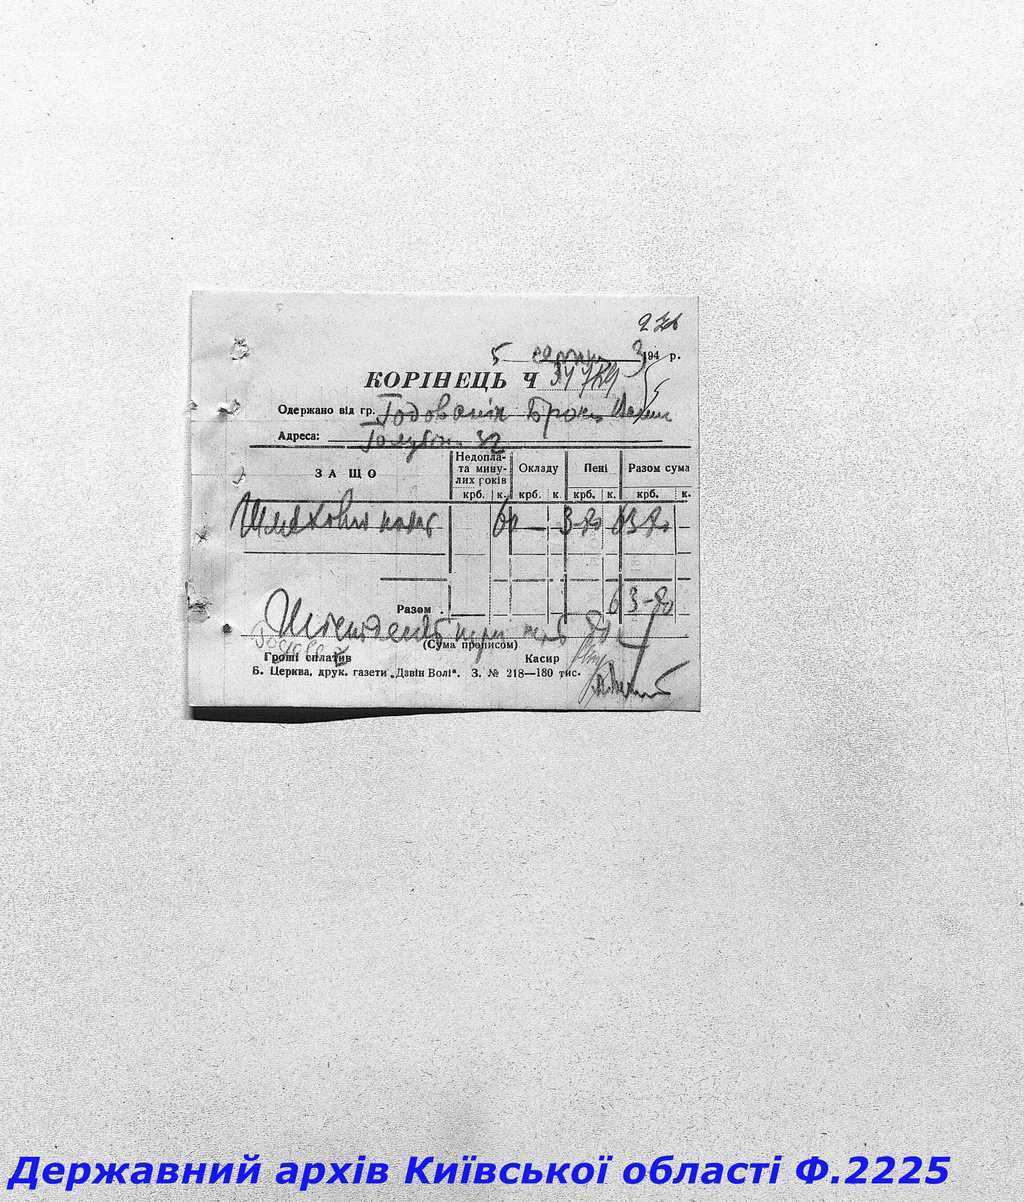 5 серпня 3 194 р.
КОРІНЕЦЬ Ч
Одержано від гр. Годованік
Адреса: 32
ЗА ЩО
Недопла-
та мину-
лих років
Окладу
Пені
Разом сума
крб. к. крб. к. крб. к. крб. к.
60 — 3-80 63-80
Разом . 63-80
Шістдесят три крб 80 к
(Сума прописом)
Гроші сплатив
Касир
Б. Церква, друк. газети „Дзвін Волі“. З. № 218—180 тис.
Державний архів Київської області Ф.2225